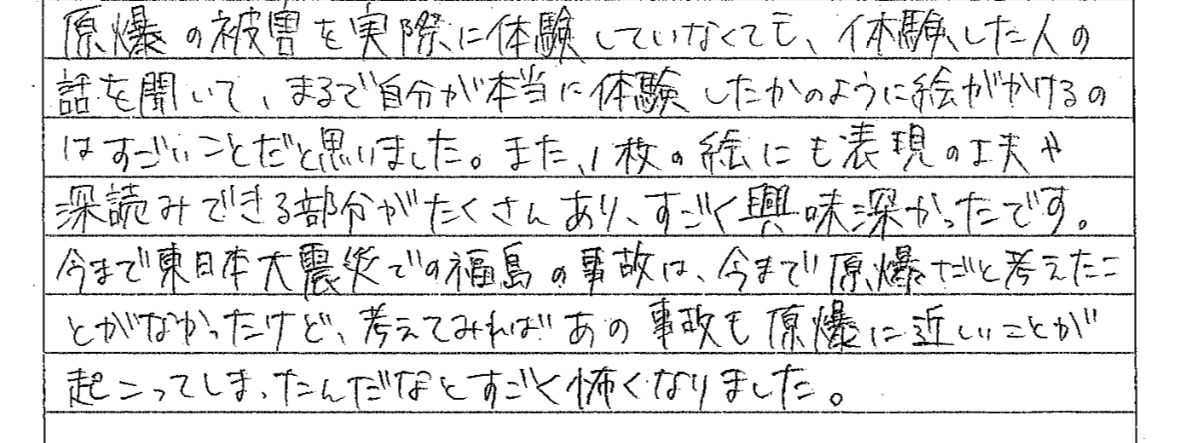 原爆の被害を実際に体験していなくても、体験した人の
話を聞いて、まるで自分が本当に体験したかのように絵がかけるの
はすごいことだと思いました。また、1枚の絵にも表現の工夫や
深読みできる部分がたくさんあり、すごく興味深かったです。
今まで東日本大震災での福島の事故は、今まで原爆だと考えたこ
とがなかったけど、考えてみればあの事故も原爆に近しいことが
起こってしまったんだなとすごく怖くなりました。